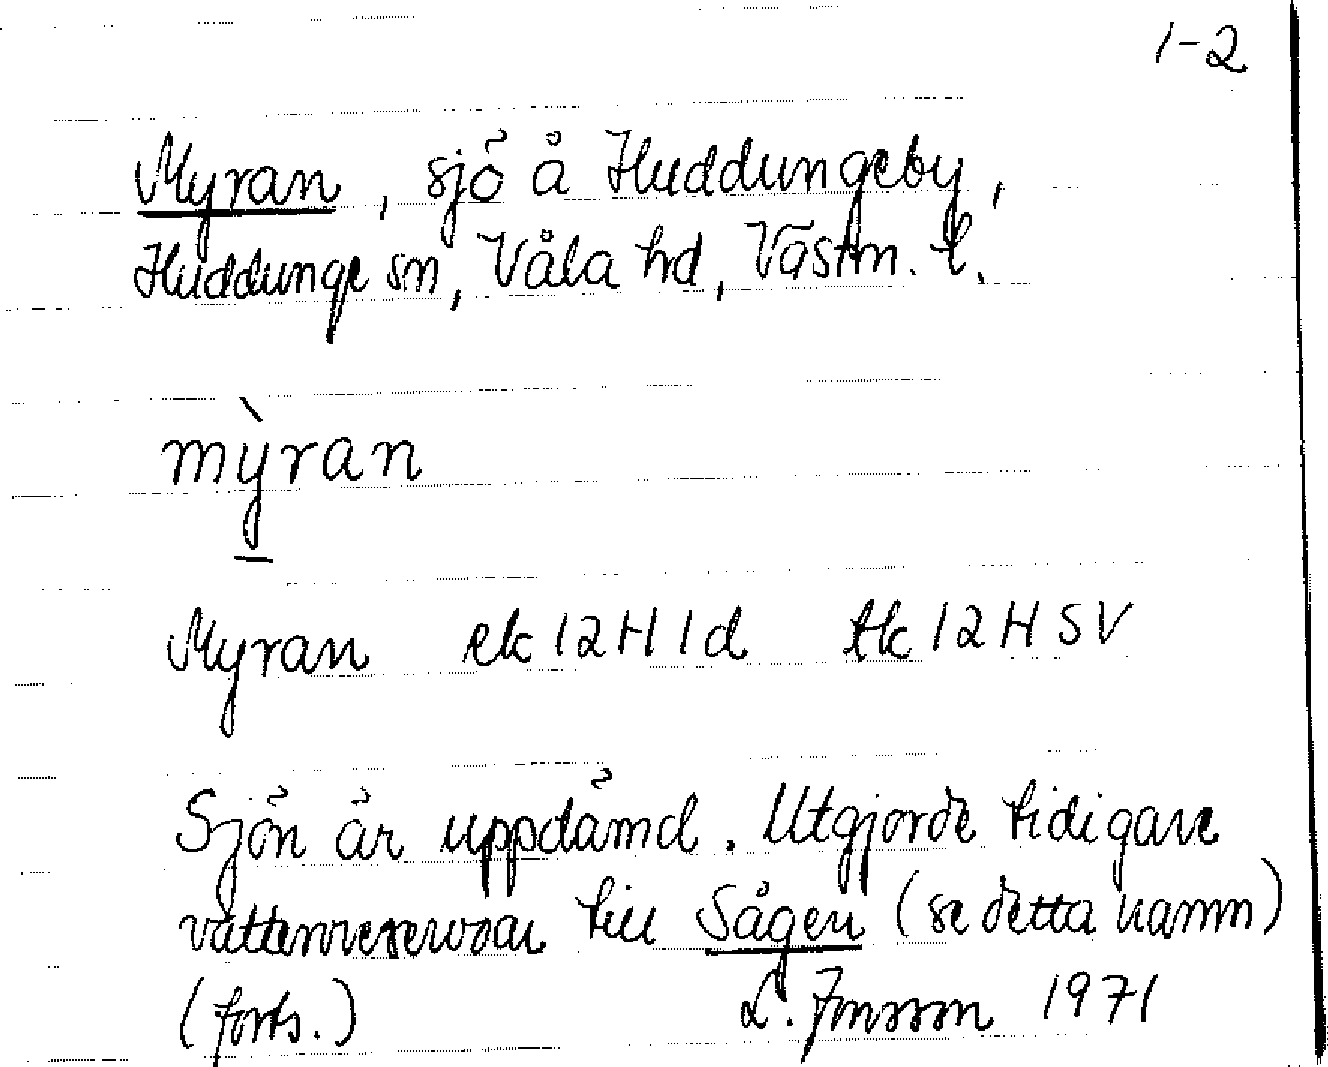 1-2
Myran, sjö å Huddungeby,
Huddunge sn, Våla hd, Västm. l.
mỳran
Myran ek 12H 1d tk 12H SV
Sjön är uppdämd. Utgjorde tidigare
vattenreservoar till Sågen (se detta namn)
(forts.) L. Jonsson 1971